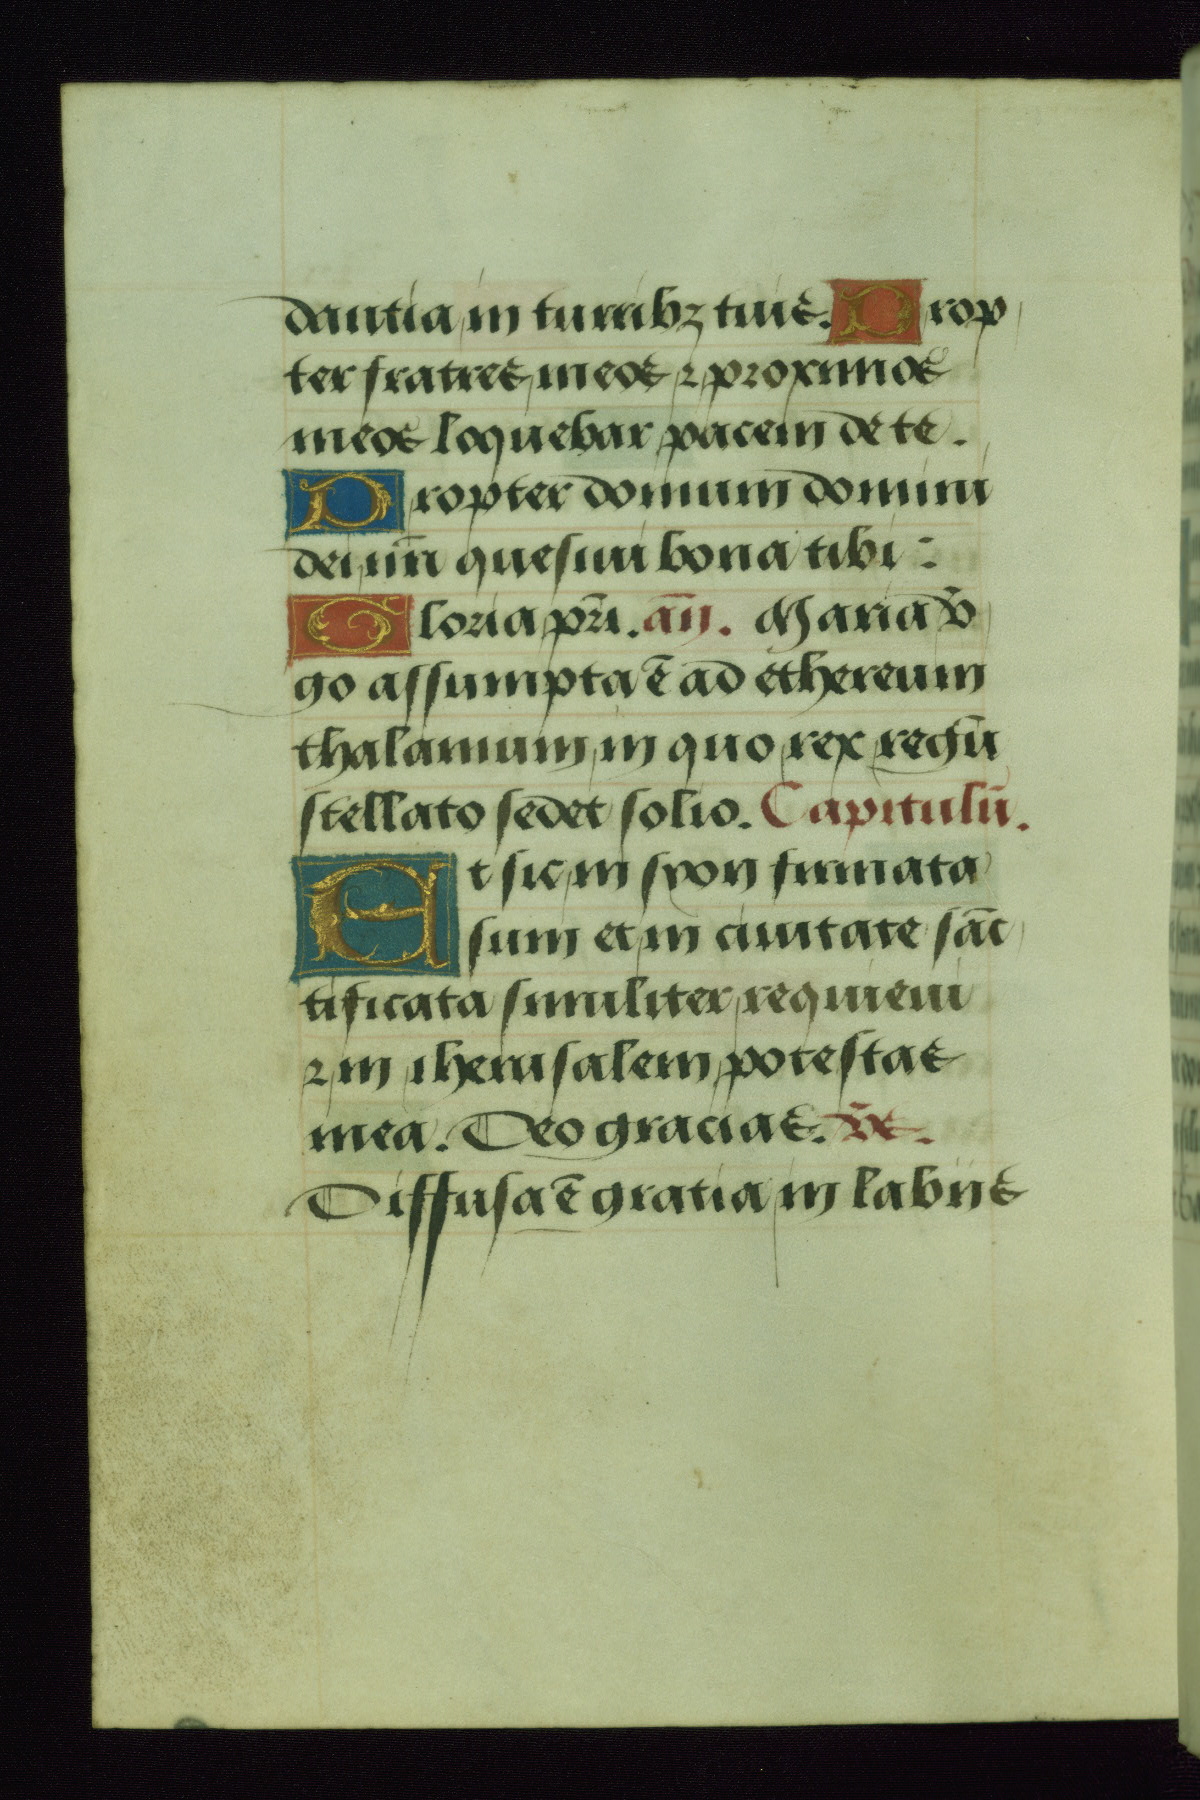 dantia in turribꝫ tuis. Prop
ter fratres meos ⁊ proximos
meos loquebar pacem de te.
Propter domum domini
dei nr̄i quesiui bona tibi :
Gloria pr̄i. an̄. Maria v̄
go assumpta ē ad ethereum
thalamum in quo rex regū
stellato sedet solio. Capitulū.
Et sic in syon firmata
sum et in ciuitate sāc
tificata similiter requieui
⁊ in iherusalem potestas
mea. Deo gracias. v̄s.
Diffusa ē gratia in labiis